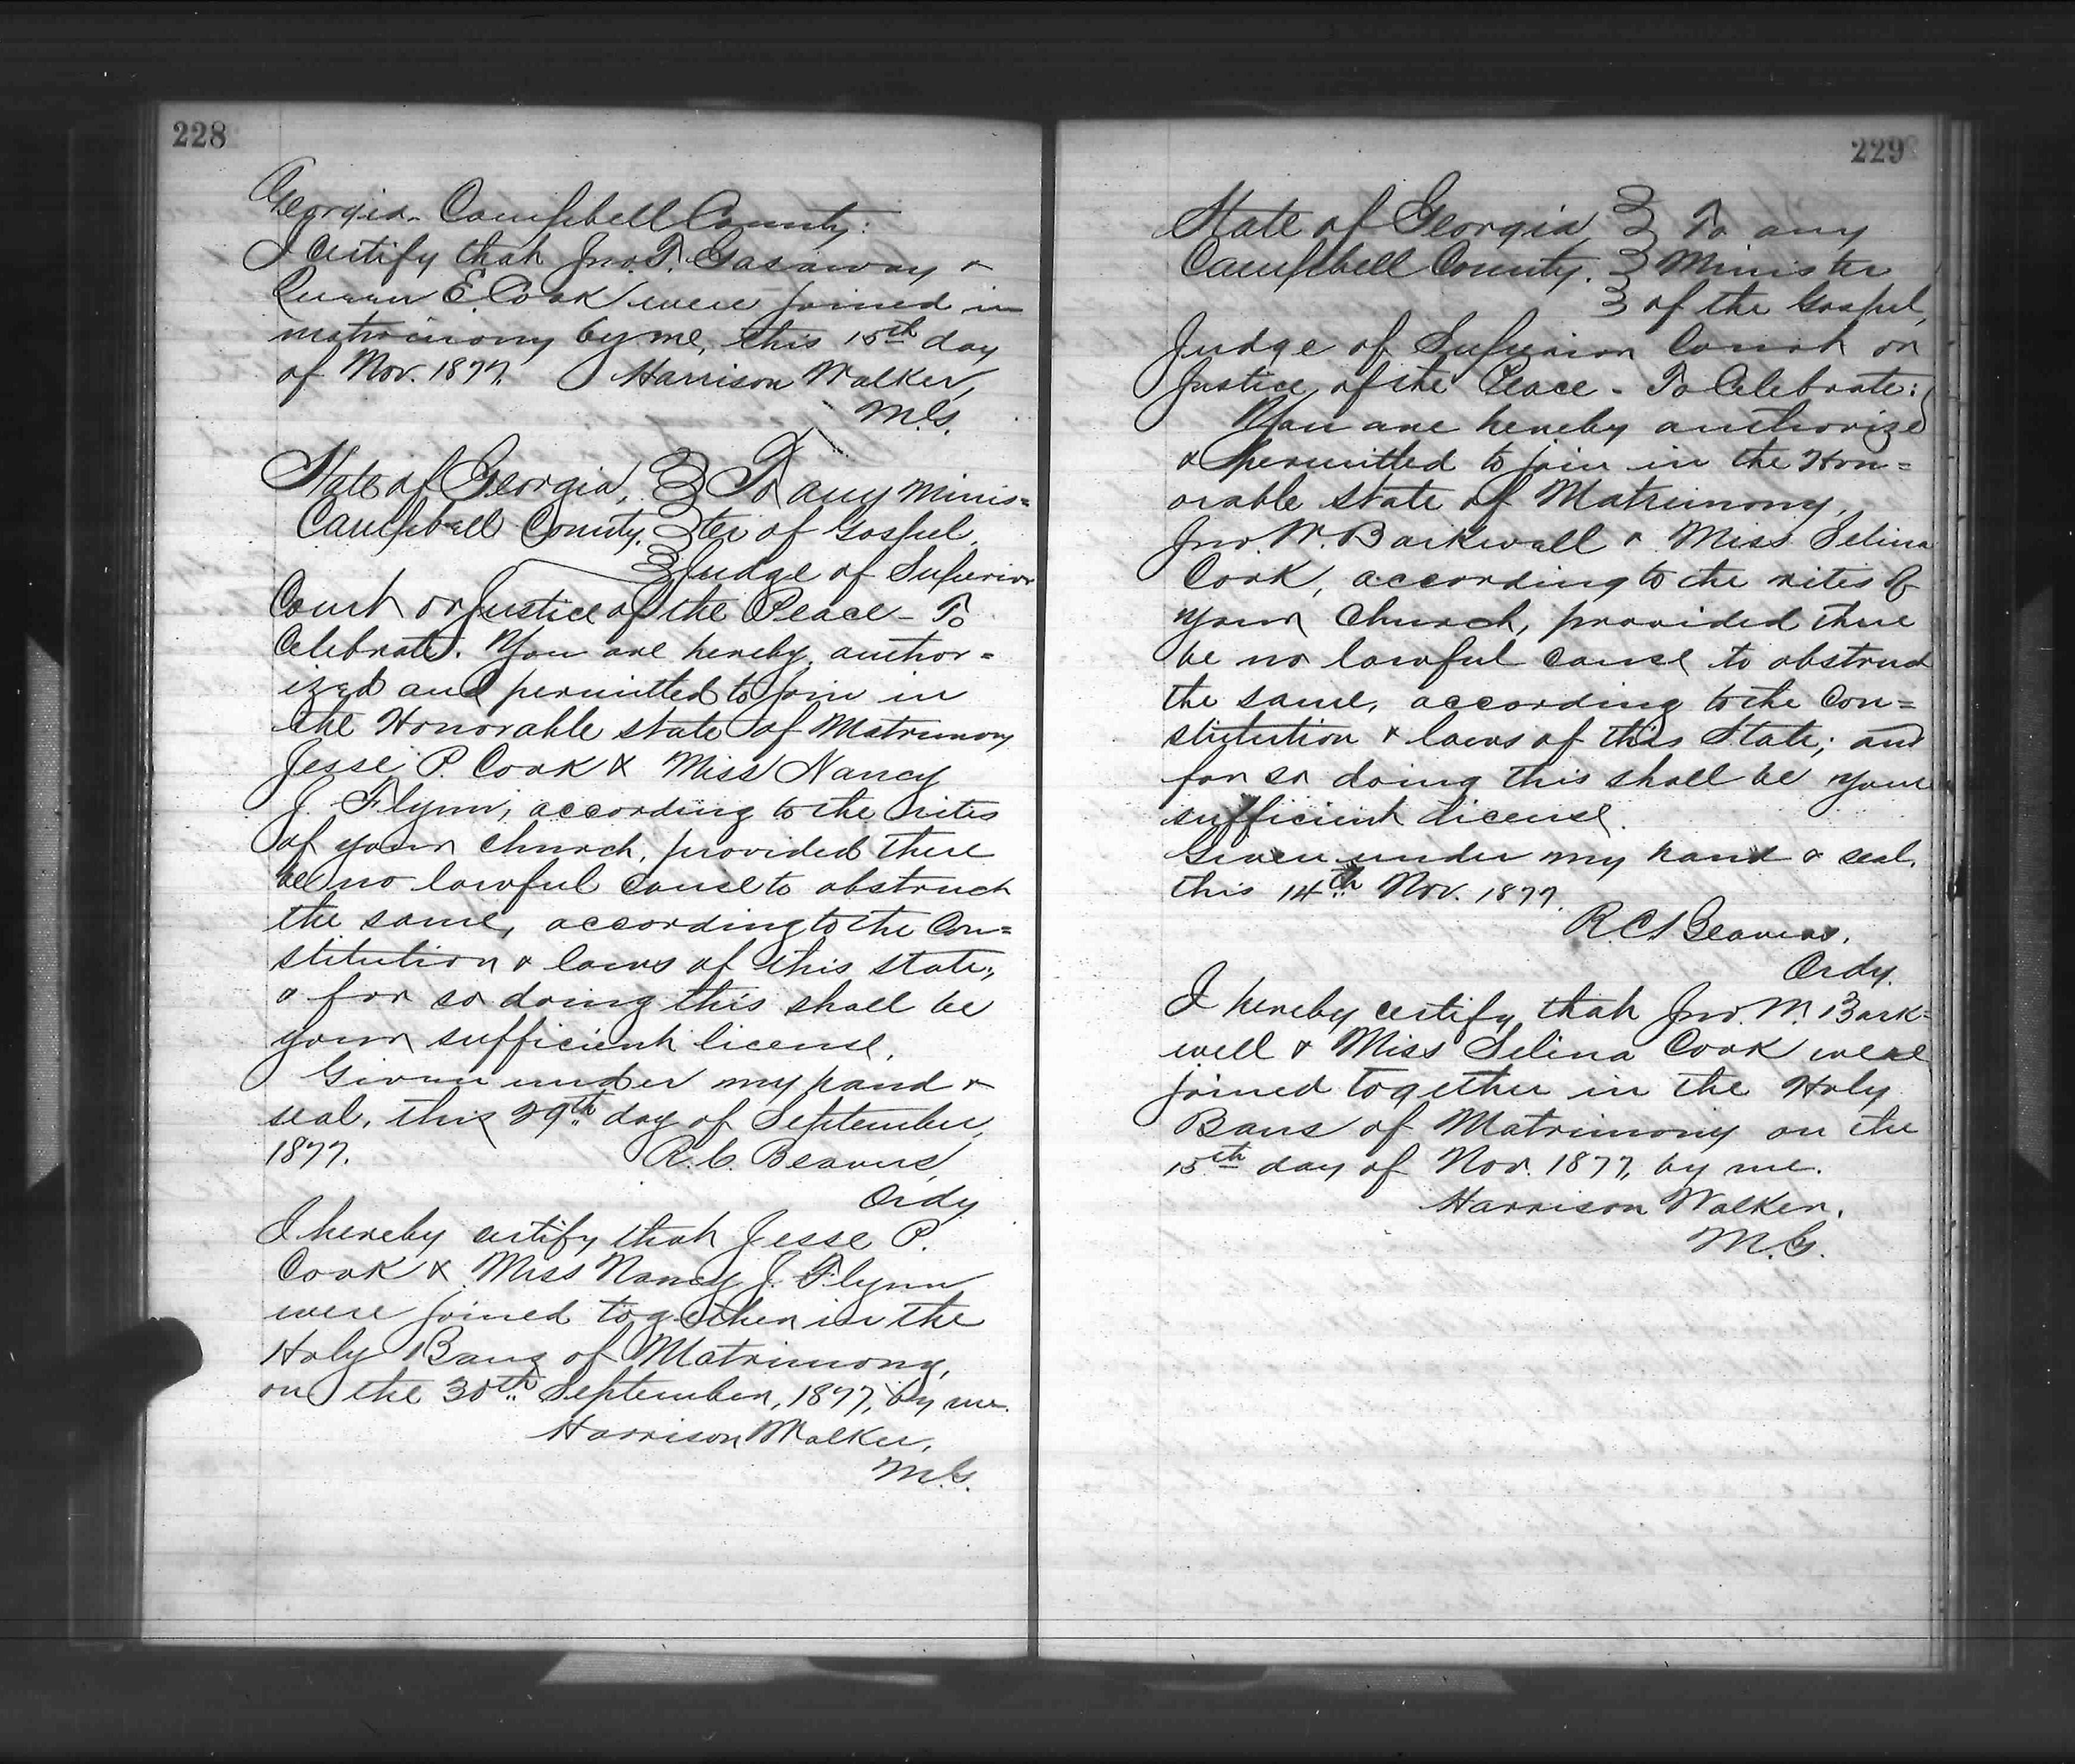 228
Georgia. Campbell County:
I certify that Jno. T. Gasaway &
E. Cook were joined in
matrimony by me, this 15th day
of Nov. 1877. Harrison Walker,
M.G.
State of Georgia, } To any Minis=
Campbell County. } ter of Gospel,
} Judge of Superior
Court or Justice of the Peace - To
Celebrate. You are hereby author=
ized and permitted to join in
the Honorable state of Matrimony
Jesse P. Cook & Miss Nancy
J. Flynn, according to the rites
of your church, provided there
be no lawful cause to obstruct
the same, according to the Con=
stitution & laws of this state;
& for so doing this shall be
your sufficient license.
Given under my hand &
seal, this 29th day of September,
1877. R. C. Beavers,
Ordy
I hereby certify that Jesse P.
Cook & Miss Nancy J. Flynn
were joined together in the
Holy Bans of Matrimony,
on the 30th September, 1877, by me.
Harrison Walker,
M.G.
229
State of Georgia } To any
Campbell County. } Minister
} of the Gospel,
Judge of Superior Court or
Justice of the Peace - To Celebrate:
You are hereby authorized
& permitted to join in the Hon=
orable state of Matrimony,
Jno. W. Barkwell & Miss Selina
Cook, according to the rites of
your church, provided there
be no lawful cause to obstruct
the same, according to the Con=
stitution & laws of this State; and
for so doing this shall be your
sufficient license.
Given under my hand & seal,
this 14th Nov. 1877.
R. C. Beavers,
Ordy.
I hereby certify that Jno. W. Bark=
well & Miss Selina Cook were
joined together in the Holy
Bans of Matrimony on the
15th day of Nov. 1877, by me.
Harrison Walker.
M.G.